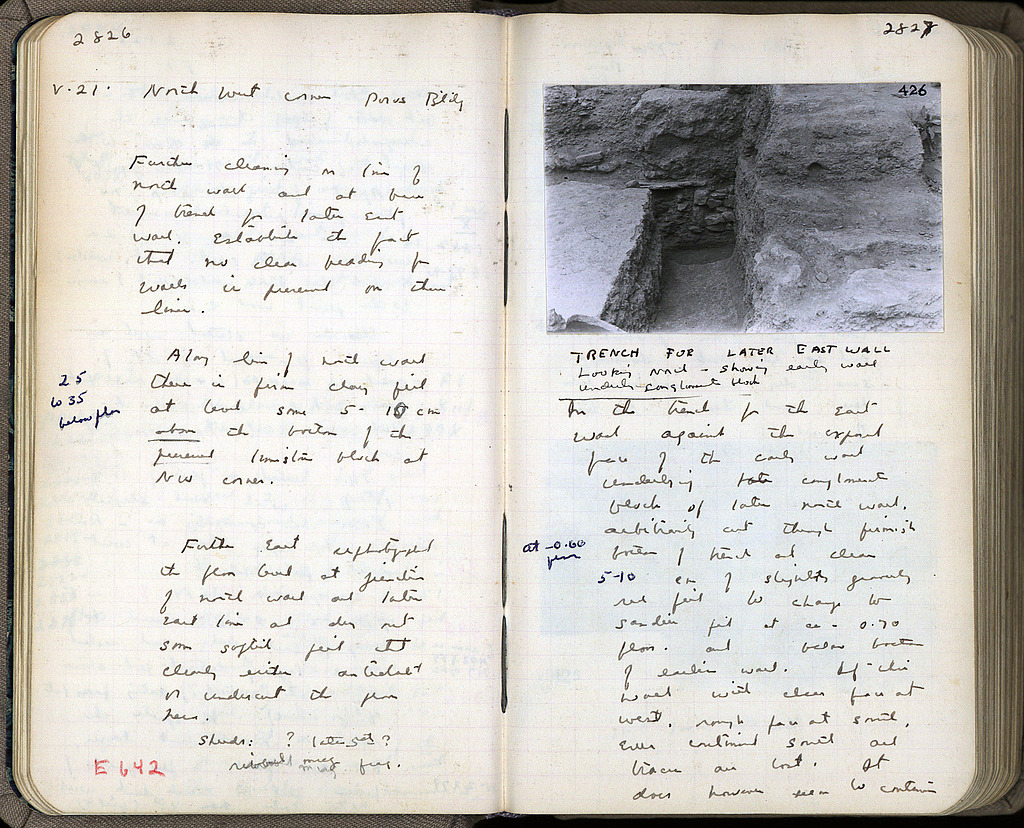 2826
V.21. North West corner Poros Bldg
Further cleaning on line of
north wall and at base
of trench for later East
wall. Establishes the fact
that no clear bedding for
walls is preserved on these
lines.
Along line of north wall
25
to 35
below floor
there is firm clay fill
at level some 5-10 cm
above the bottom of the
preserved limestone block at
NW corner.
Further East
the floor level at junction
of north wall and later
East line and dug out
some softish fill that
clearly either antedates
or undercut the floor
here.
Sherds: ? late 5th ?
E 642
2827
426
TRENCH FOR LATER EAST WALL
Looking North - showing early wall
underlying conglomerate block
In the trench for the East
wall against the exposed
face of the early wall
underlying conglomerate
block of later north wall,
arbitrarily cut through firmish
at -0.60
floor
bottom of trench and clear
5-10 cm of slightly gravelly
red fill to change to
sandier fill at ca - 0.70
floor. and below bottom
of earlier wall.
wall with clear face at
west, rough face at south,
Ever continued south all
traces are lost. It
does however seem to contain